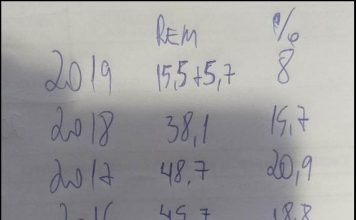 REM %
2019 15,5+5,7 8
2018 38,1 15,7
2017 48,7 20,9